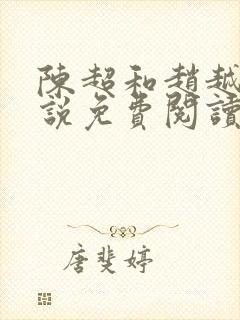 陳超和趙越
說免費閱讀
唐斐婷